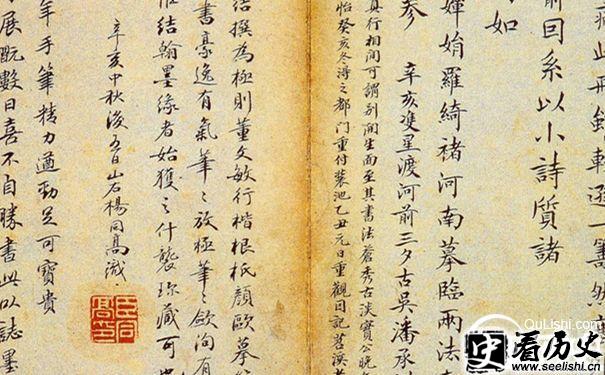 此飛鈍遜一籌然
前回系以小詩質諸
如
嬋娟羅綺褚河南摹臨兩法
參 辛亥雙星渡河前三夕古吳潘承
真行相間可謂别開生面至其書法蒼秀古淡實公晚
怡癸亥冬得之都門重付裝池乙丑元日重觀因記苕溪
結撰為極則董文敏行楷根柢顏歐摹
書豪逸有氣筆〻放極筆〻斂向有
結翰墨緣者始獲之什襲珍藏可
辛亥中秋後五日山右楊同高識
年手筆精力遒勁足可寶貴
展翫數日喜不自勝書此以誌墨
QuLiShi.com
看历史
www.seelishi.cn